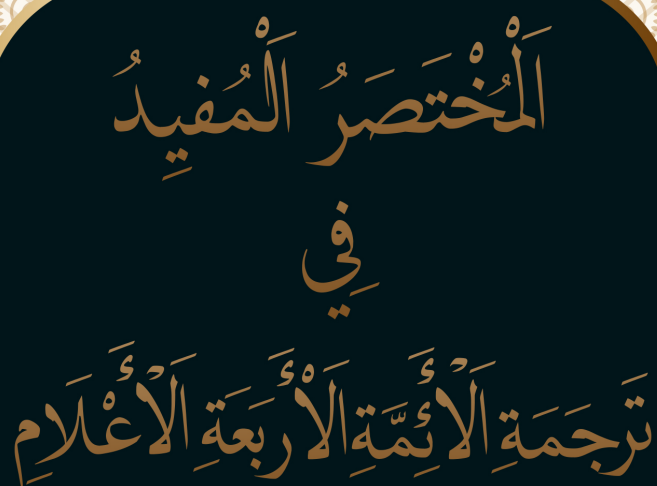 اَلْمُخْتَصَرُ اَلْمُفِيدُ
فِي
تَرجَمَةِ اَلْأَئِمَّةِ اَلْأَربَعَةِ اَلْأَعْلَامِ